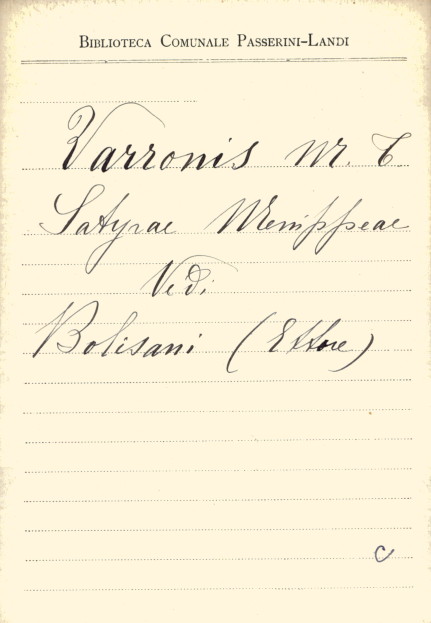 BIBLIOTECA COMUNALE PASSERINI-LANDI
Varronis M. T.
Satyrae Menippeae
Vedi
Bolisani (Ettore)
C